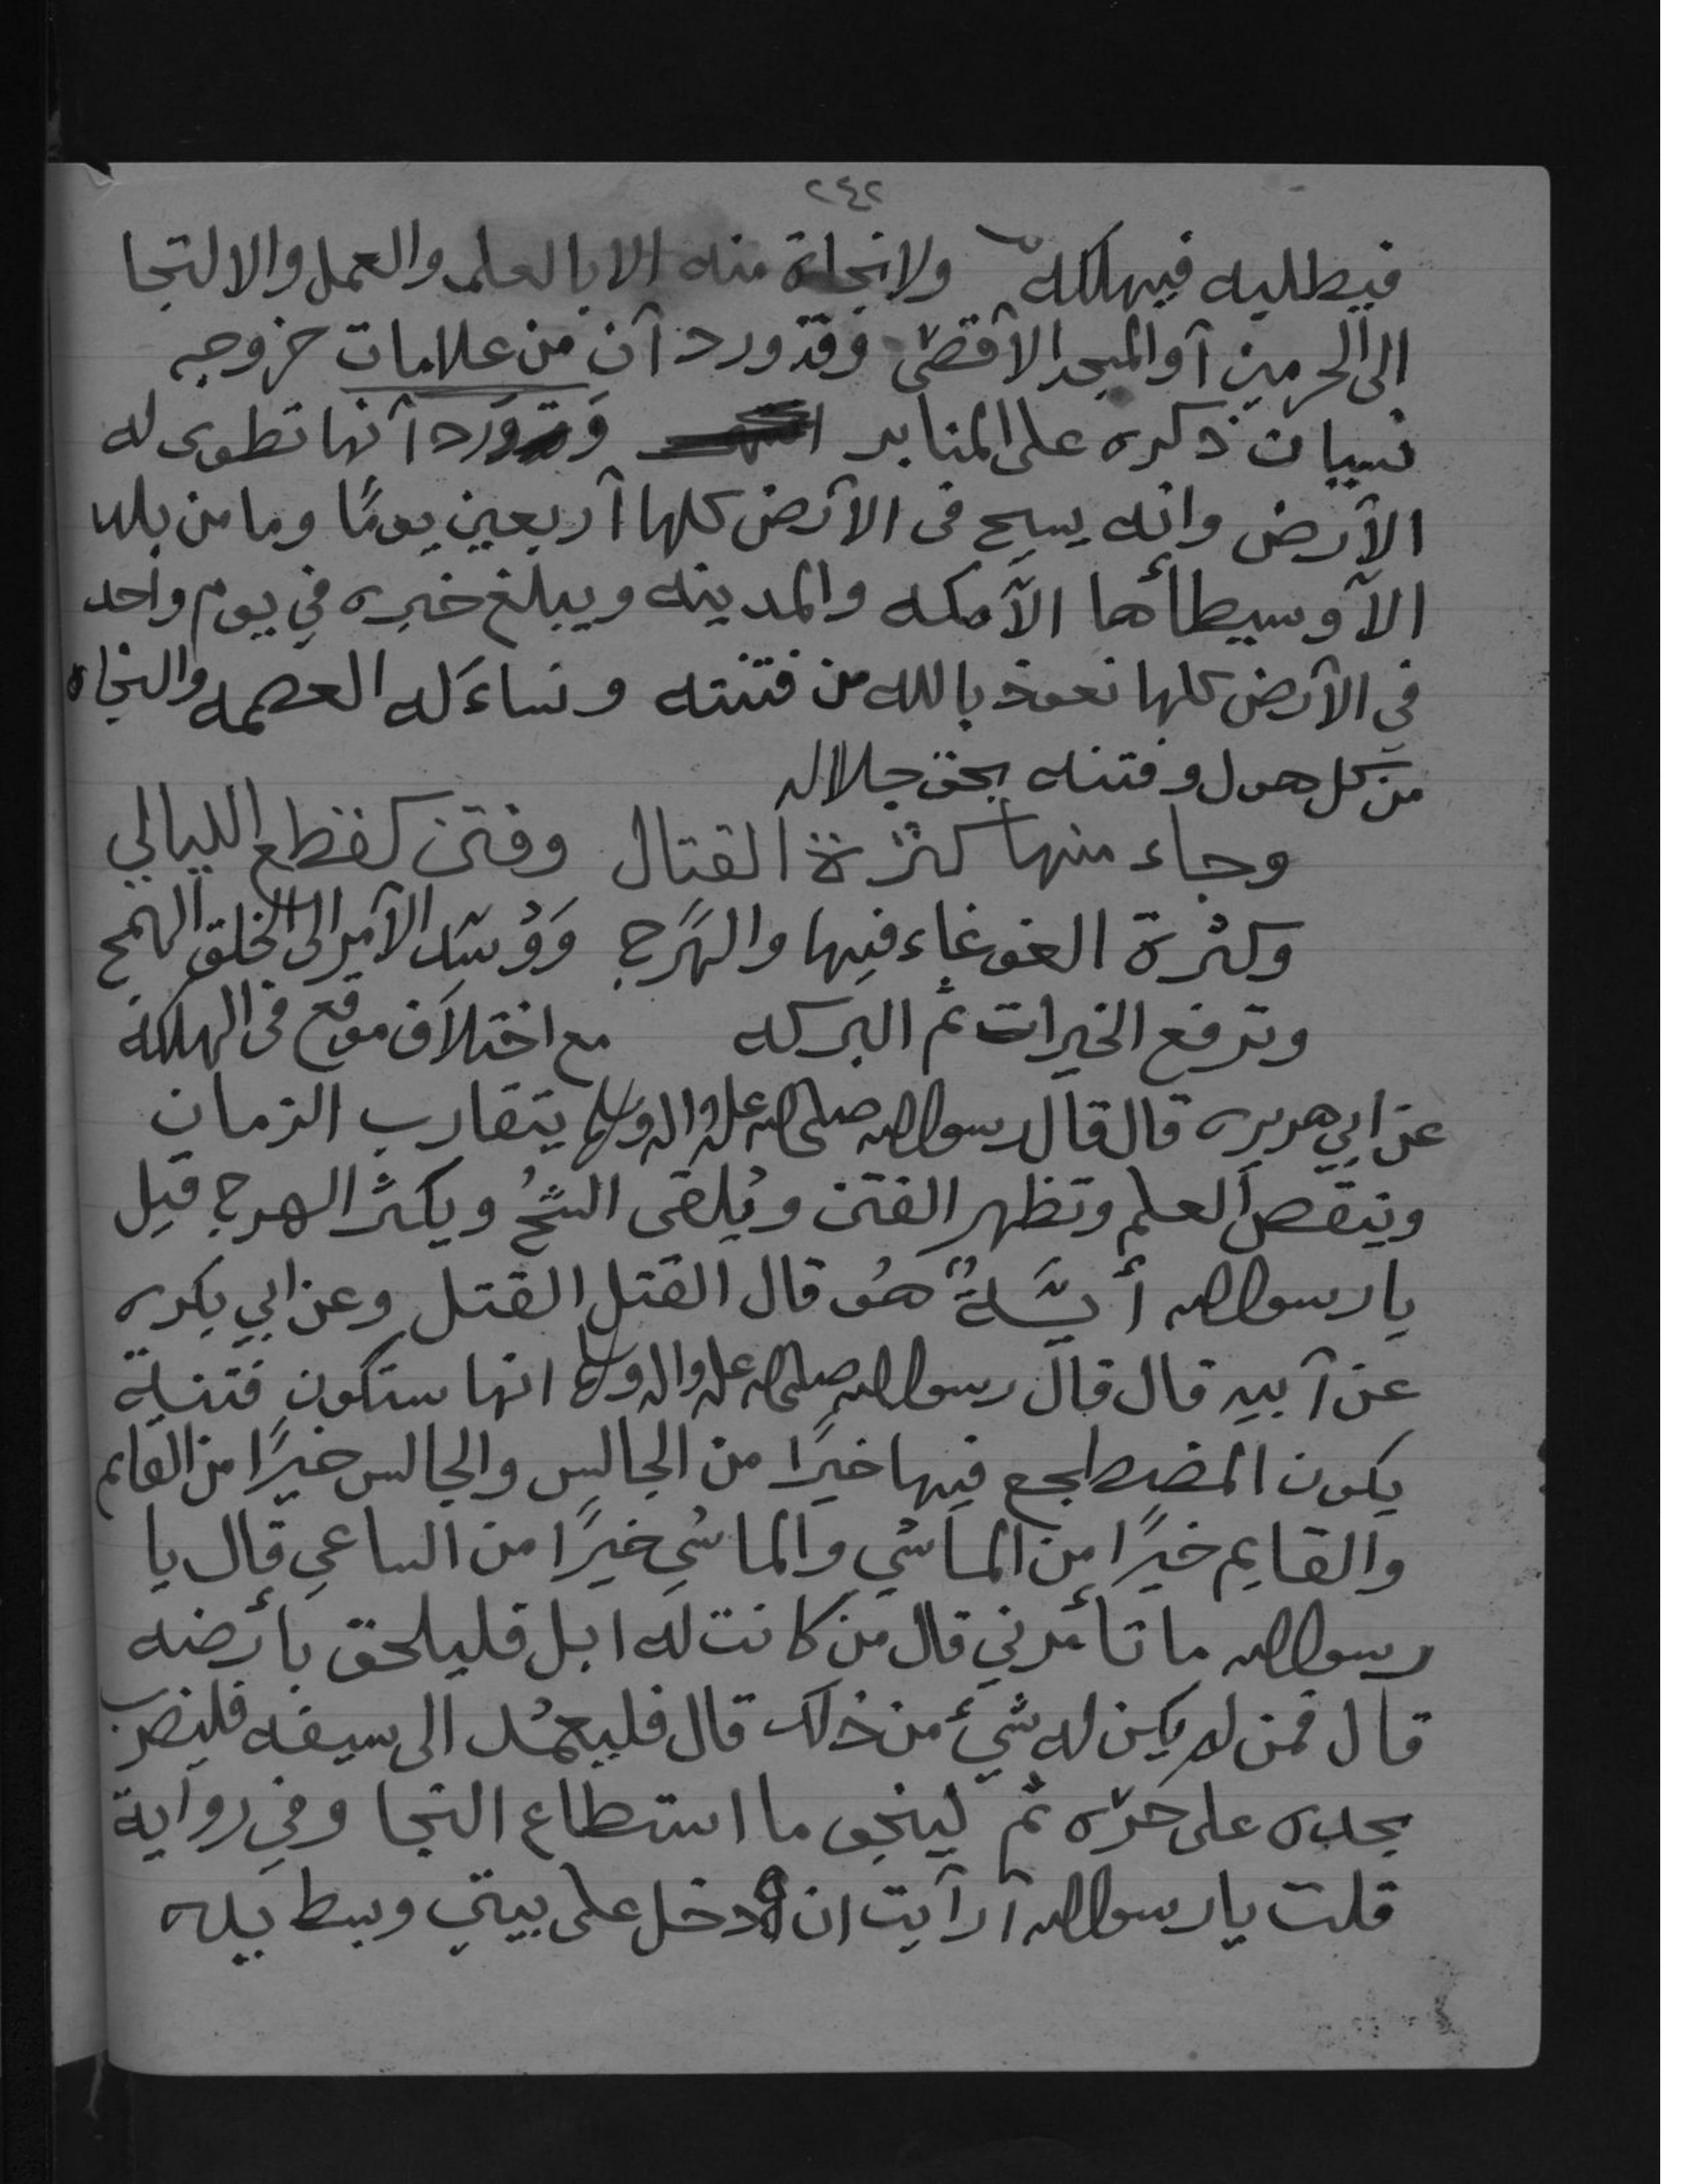 ٢٤٢
فيطلبه فيهلكه ولانجاة منه الا بالعلم والعمل والالتجا
الى الحرمين أو المسجد الأقصى وقد ورد أن من علامات خروجه
نسيان ذكره على المنابر وورد أنها تطوى له
الأرض وانه يسيح فى الأرض كلها أربعين يومًا وما من بلد
الاّ وسيطأها الاّ مكه والمدينه ويبلغ خبره في يوم واحد
في الأرض كلها نعوذ بالله من فتنته ونساءَله العصمه والنجاه
من كل هول وفتنه بحق جلاله
وجاء منها كثرة القتال وفتن كقطع الليالي
وكثرة الغوغاء فيها والهَرج وَوُسّد الأمر الى الخلق الهمج
وترفع الخيرات ثم البركه مع اختلاف موقع فى الهلكه
عن ابي هريره قال قال رسول الله صلى الله عليه واله وسلم يتقارب الزمان
وينقص العلم وتظهر الفتن ويُلقى الشحُ ويكثر الهرج قيل
يا رسول الله أيَّـةٌ هُو قال القتل القتل وعن ابي بكره
عن أبيه قال قال رسول الله صلى الله عليه واله وسلم انها ستكون فتنة
يكون المضطجع فيها خيرًا من الجالس والجالس خيرًا من القايم
والقايم خيرًا من الماشي والماشي خيرًا من الساعي قال يا
رسول الله ما تأمرني قال من كانت له ابل فليلحق بأرضه
قال فمن لم يكن له شيئ من ذلك قال فليعمُد الى سيفه فليضرب
بحده على حرّه ثم لينجو ما استطاع النجا وفي رواية
قلت يا رسول الله أرأيت ان دخل على بيتي وبسط يده